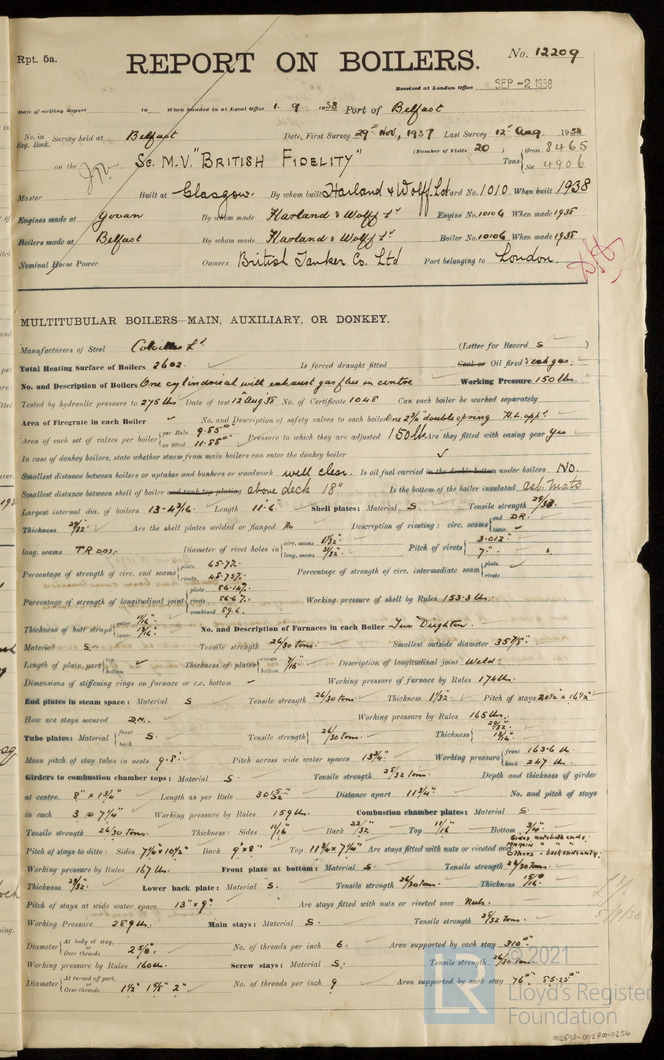 Rpt. 5a.
REPORT ON BOILERS.
No. 12209
Received at London Office SEP -2 1938
Date of writing Report 19 When handed in at Local Office 1. 9. 1938 Port of Belfast
No. in Reg. Book. Survey held at Belfast Date, First Survey 29th Nov, 1937 Last Survey 12th Aug. 1938
on the Sc. M.V. "BRITISH FIDELITY" (Number of Visits 20) Tons Gross 8465 Net 4906
Master Built at Glasgow. By whom built Harland & Wolff Ld Yard No. 1010 When built 1938
Engines made at Govan By whom made Harland & Wolff Ld Engine No. 1010G When made 1938
Boilers made at Belfast By whom made Harland & Wolff Ld Boiler No. 1010G When made 1938
Nominal Horse Power Owners British Tanker Co. Ltd Port belonging to London.
MULTITUBULAR BOILERS—MAIN, AUXILIARY, OR DONKEY.
Manufacturers of Steel Colvilles Ld (Letter for Record S)
Total Heating Surface of Boilers 2602 Is forced draught fitted Coal or Oil fired & exh. gas.
No. and Description of Boilers One cylindrical with exhaust gas flue in centre Working Pressure 150 lbs.
Tested by hydraulic pressure to 275 lbs Date of test 12 Aug 38 No. of Certificate 1048 Can each boiler be worked separately
Area of Firegrate in each Boiler No. and Description of safety valves to each boiler One 2¾" double spring H.L. appd
Area of each set of valves per boiler per Rule 9.85 as fitted 11.88 Pressure to which they are adjusted 150 lbs Are they fitted with easing gear yes
In case of donkey boilers, state whether steam from main boilers can enter the donkey boiler
Smallest distance between boilers or uptakes and bunkers or woodwork well clear. Is oil fuel carried in the double bottom under boilers No.
Smallest distance between shell of boiler and tank top plating above deck 18" Is the bottom of the boiler insulated asb. mats
Largest internal dia. of boilers 13-4 3/16 Length 11-6 Shell plates: Material S Tensile strength 29/33
Thickness Are the shell plates welded or flanged No Description of riveting: circ. seams end D.R. inter.
long. seams T.R. DBS. Diameter of rivet holes in circ. seams long. seams Pitch of rivets 3.012" 7"
Percentage of strength of circ. end seams plate 65.7% rivets Percentage of strength of circ. intermediate seam plate rivets
Percentage of strength of longitudinal joint plate rivets combined 89.6 Working pressure of shell by Rules 153.3 lbs.
Thickness of butt straps outer inner No. and Description of Furnaces in each Boiler Two Deighton.
Material S. Tensile strength 26/30 tons Smallest outside diameter
Length of plain part top bottom Thickness of plates crown bottom 7/16 Description of longitudinal joint Weld.
Dimensions of stiffening rings on furnace or c.c. bottom Working pressure of furnace by Rules 174 lbs.
End plates in steam space: Material S Tensile strength 26/30 tons Thickness 1 1/32 Pitch of stays
How are stays secured D.N. Working pressure by Rules 165 lbs.
Tube plates: Material front back S. Tensile strength 26/30 tons. Thickness
Mean pitch of stay tubes in nests 9.8" Pitch across wide water spaces 13¾" Working pressure front 163.6 lbs back 247 lbs
Girders to combustion chamber tops: Material S Tensile strength 28/32 tons. Depth and thickness of girder
at centre 8" x 1¾" Length as per Rule Distance apart 11¾" No. and pitch of stays
in each 3 @ 7¼" Working pressure by Rules 159 lbs Combustion chamber plates: Material S
Tensile strength 26/30 tons. Thickness: Sides 11/16 Back 22/32 Top 11/16 Bottom 3/4
Pitch of stays to ditto: Sides Back 9" x 8" Top 11¾ x 7¼" Are stays fitted with nuts or riveted over
Working pressure by Rules 167 lbs. Front plate at bottom: Material S. Tensile strength 26/30 tons.
Thickness Lower back plate: Material S. Tensile strength 26/30 tons Thickness
Pitch of stays at wide water space 13" x 9" Are stays fitted with nuts or riveted over Nuts.
Working Pressure 289 lbs. Main stays: Material S. Tensile strength 28/32 tons.
Diameter At body of stay, or Over threads No. of threads per inch 6. Area supported by each stay 310"
Working pressure by Rules 160 lbs. Screw stays: Material S. Tensile strength 26/30 tons
Diameter At turned off part, or Over threads 1½" 1⅝" 2" No. of threads per inch 9 Area supported by each stay 76" 85.25"
LR
© 2021
Lloyd's Register
Foundation